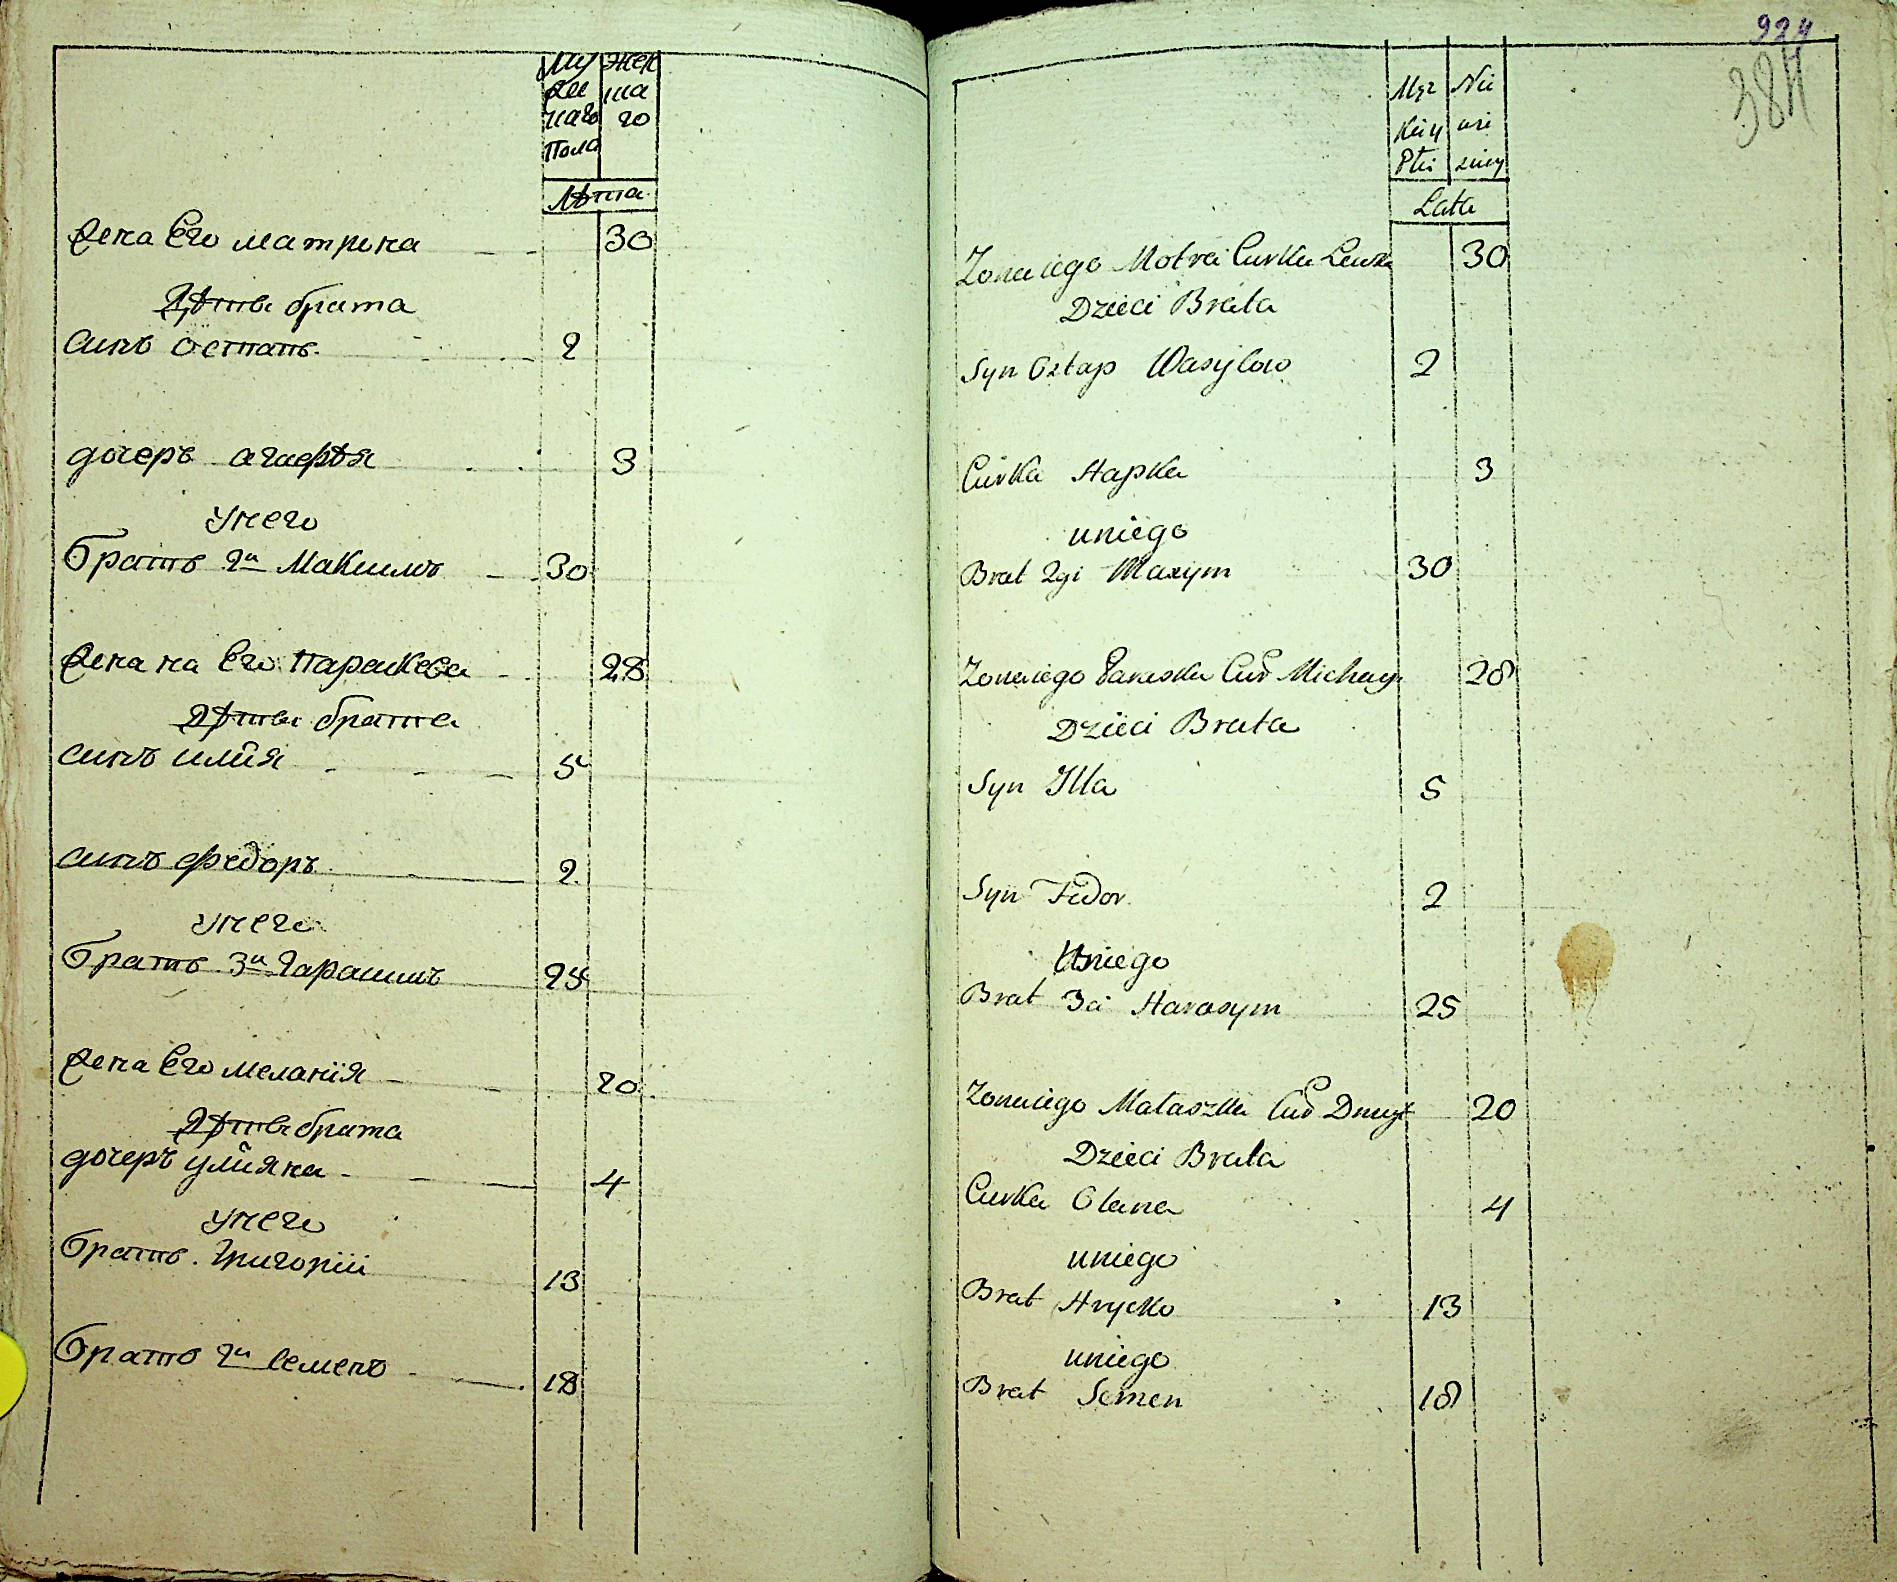 Му Жен
же ша
наго го
Пола
Лѣта
Жена Его матрена 30
Дѣти брата
синъ Остапъ 2
дочеръ агафѣя 3
унего
братъ 2й Максимъ 30
Жена на Его Параскева 28
дѣти брата
синъ илия 5
синъ федоръ 2
унего
братъ 3й Гарасимъ 25
Жена Его меланія 20
дѣти брата
дочеръ улияна 4
унего
братъ Григорій 13
братъ 2й Семенъ 18
924
384
Męz Nie
kiey wie
Płci sciey
Lata
Zona iego Motra Curka Lewka 30
Dzieci Brata
Syn Ostap Wasylow 2
Curka Hapka 3
uniego
Brat 2gi Maxym 30
Zona iego Paraska Cur Michay 28
Dzieci Brata
Syn Illa 5
Syn Fedor 2
Uniego
Brat 3ci Harasym 25
Zona iego Małaszka Cur Dmyt 20
Dzieci Brata
Curka Olana 4
uniego
Brat Hrycko 13
uniego
Brat Semen 18